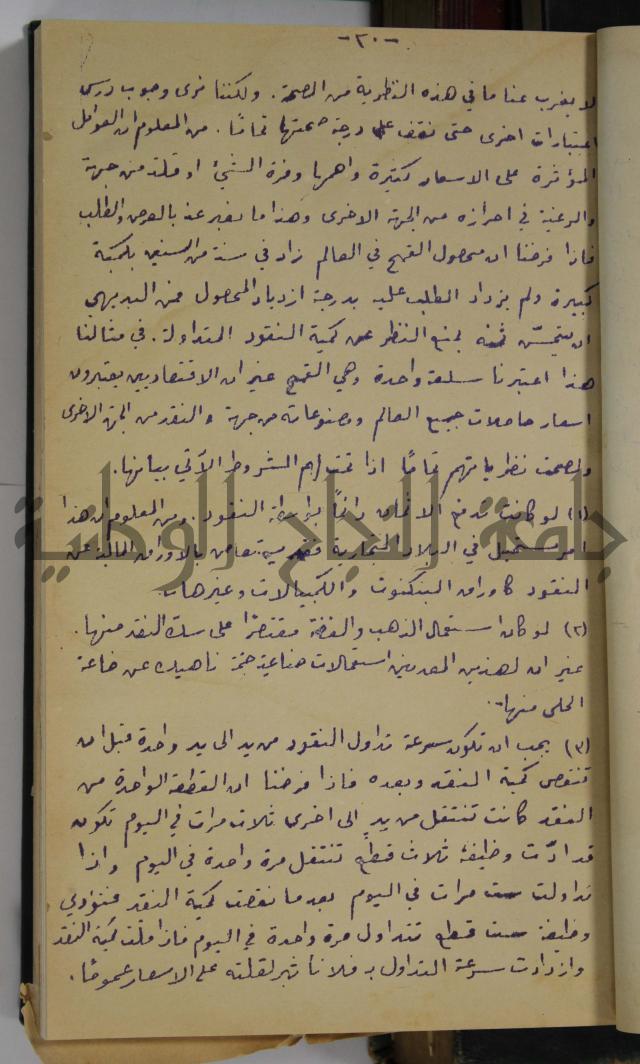 -٢٠-
لا يغرب عنا ما في هذه النظرية من الصحة. ولكننا نرى وجوب درس
اعتبارات اخرى حتى نقف على درجة صحتها تمامًا. من المعلوم ان العوامل
المؤثرة على الاسعار كثيرة واهمها وفرة الشيء او قلته من جهة
والرغبة في احرازه من الجهة الاخرى وهذا ما يعبر عنه بالعرض والطلب
فاذا فرضنا ان محصول القمح في العالم زاد في سنة من السنين بكمية
كبيرة ولم يزداد الطلب عليه بدرجة ازدياد المحصول فمن البديهي
ان ثمنه النظر عن كمية النقود المتداولة. في مثالنا
هذا اعتبرنا سلعة واحدة وهي القمح غير ان الاقتصاديين يعتبرون
اسعار حاصلات جميع العالم ومصنوعاته من جهة والنقد من الجهة الاخرى
ولصحت نظرياتهم تمامًا اذا تمت لهم الشروط الآتي بيانها.
(١) لو كانت تدفع الاثمان دائمًا بواسطة النقود. ومن المعلوم ان هذا
امر مستحيل في البلاد التجارية فقد يستعاض بالاوراق المالية عن
النقود كاوراق البنكنوت والكمبيالات وغيرها.
(٢) لو كان استعمال الذهب والفضة مقتصرًا على سك النقد منها.
غير ان لهذين المعدنين استعمالات صناعية جمة ناهيك عن صناعة
الحلى منها.
(٣) يجب ان تكون سرعة تداول النقود من يد الى يد واحدة قبل ان
تنقص كمية النقد وبعده فاذا فرضنا ان القطعة الواحدة من
النقد كانت تنتقل من يدٍ الى اخرى ثلاث مرات في اليوم تكون
قد ادّت وظيفة ثلاث قطع تنتقل مرة واحدة في اليوم واذا
تداولت ست مرات في اليوم بعد ما نقصت كمية النقد فتؤدي
وظيفة ست قطع تتداول مرة واحدة في اليوم فاذا قلّت كمية النقد
وازدادت سرعة التداول به فلا تأثير لقلته على الاسعار عمومًا.
جامعة النجاح الوطنية